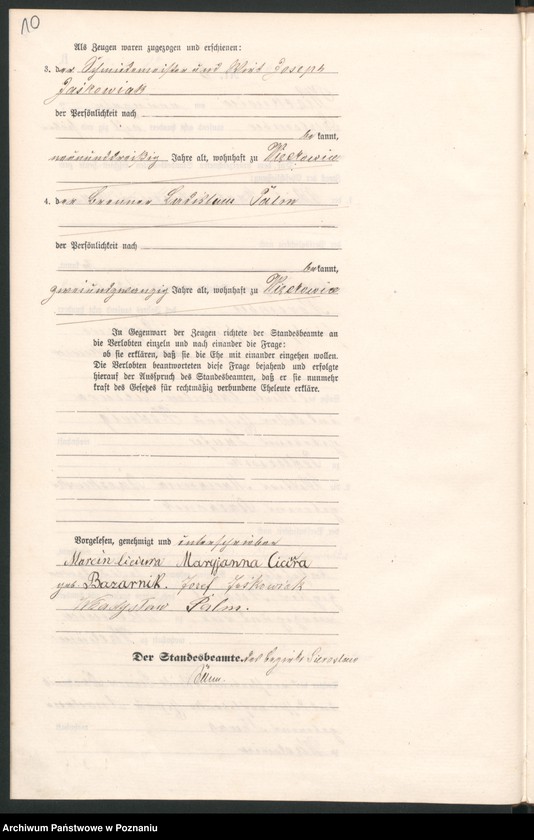 10
Als Zeugen waren zugezogen und erschienen:
3. der Schmiedemeister und Wirt Joseph
Jaskowiak
der Persönlichkeit nach
be kannt,
neununddreißig Jahre alt, wohnhaft zu Więckowice
4. der Brenner Ladislaus Palm
der Persönlichkeit nach
be kannt,
zweiundzwanzig Jahre alt, wohnhaft zu Więckowice
In Gegenwart der Zeugen richtete der Standesbeamte an
die Verlobten einzeln und nach einander die Frage:
ob sie erklären, daß sie die Ehe mit einander eingehen wollen.
Die Verlobten beantworteten diese Frage bejahend und erfolgte
hierauf der Ausspruch des Standesbeamten, daß er sie nunmehr
kraft des Gesetzes für rechtmäßig verbundene Eheleute erkläre.
Vorgelesen, genehmigt und unterschrieben
Marcin Ciciura Maryjanna
geb. Bazarnik. Jozef Jeśkowiak
Władysław Palm.
Der Standesbeamte. des Bezirks Sieroslaw
Archiwum Państwowe w Poznaniu